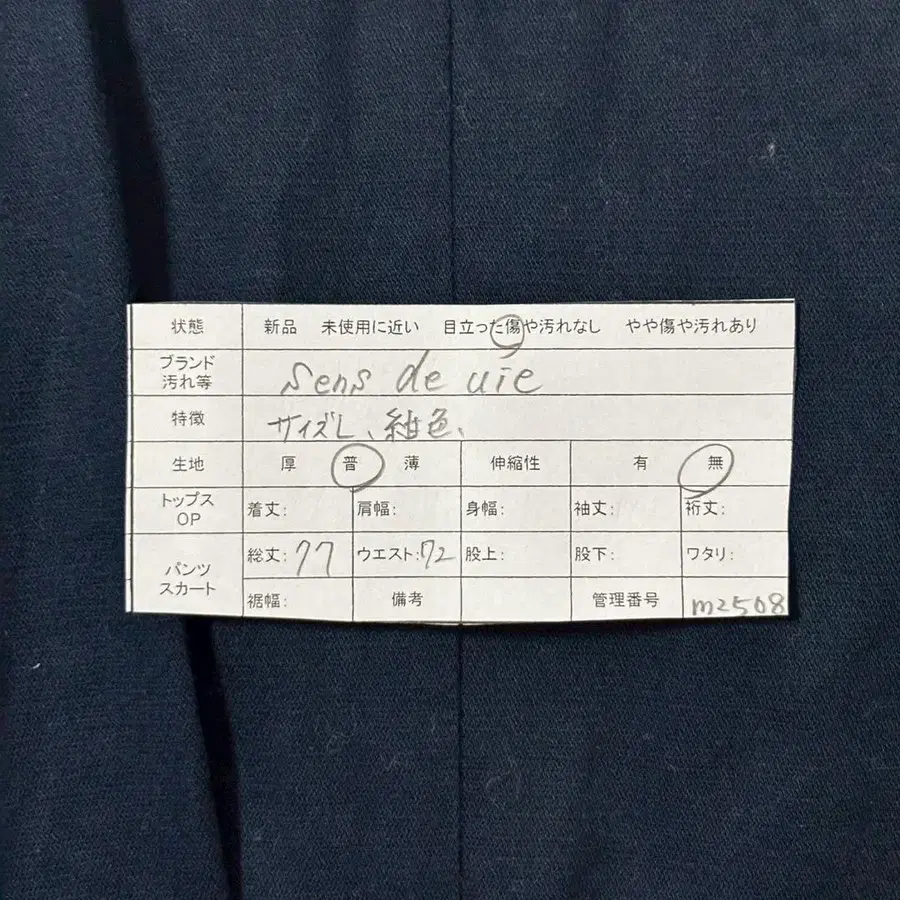 状態 新品 未使用に近い 目立った傷や汚れなし やや傷や汚れあり
ブランド
汚れ等 sens de vie
特徴 サイズL、紺色、
生地 厚 普 薄 伸縮性 有 無
トップス
OP 着丈: 肩幅: 身幅: 袖丈: 裄丈:
パンツ
スカート 総丈:77 ウエスト:72 股上: 股下: ワタリ:
裾幅: 備考 管理番号 m2508